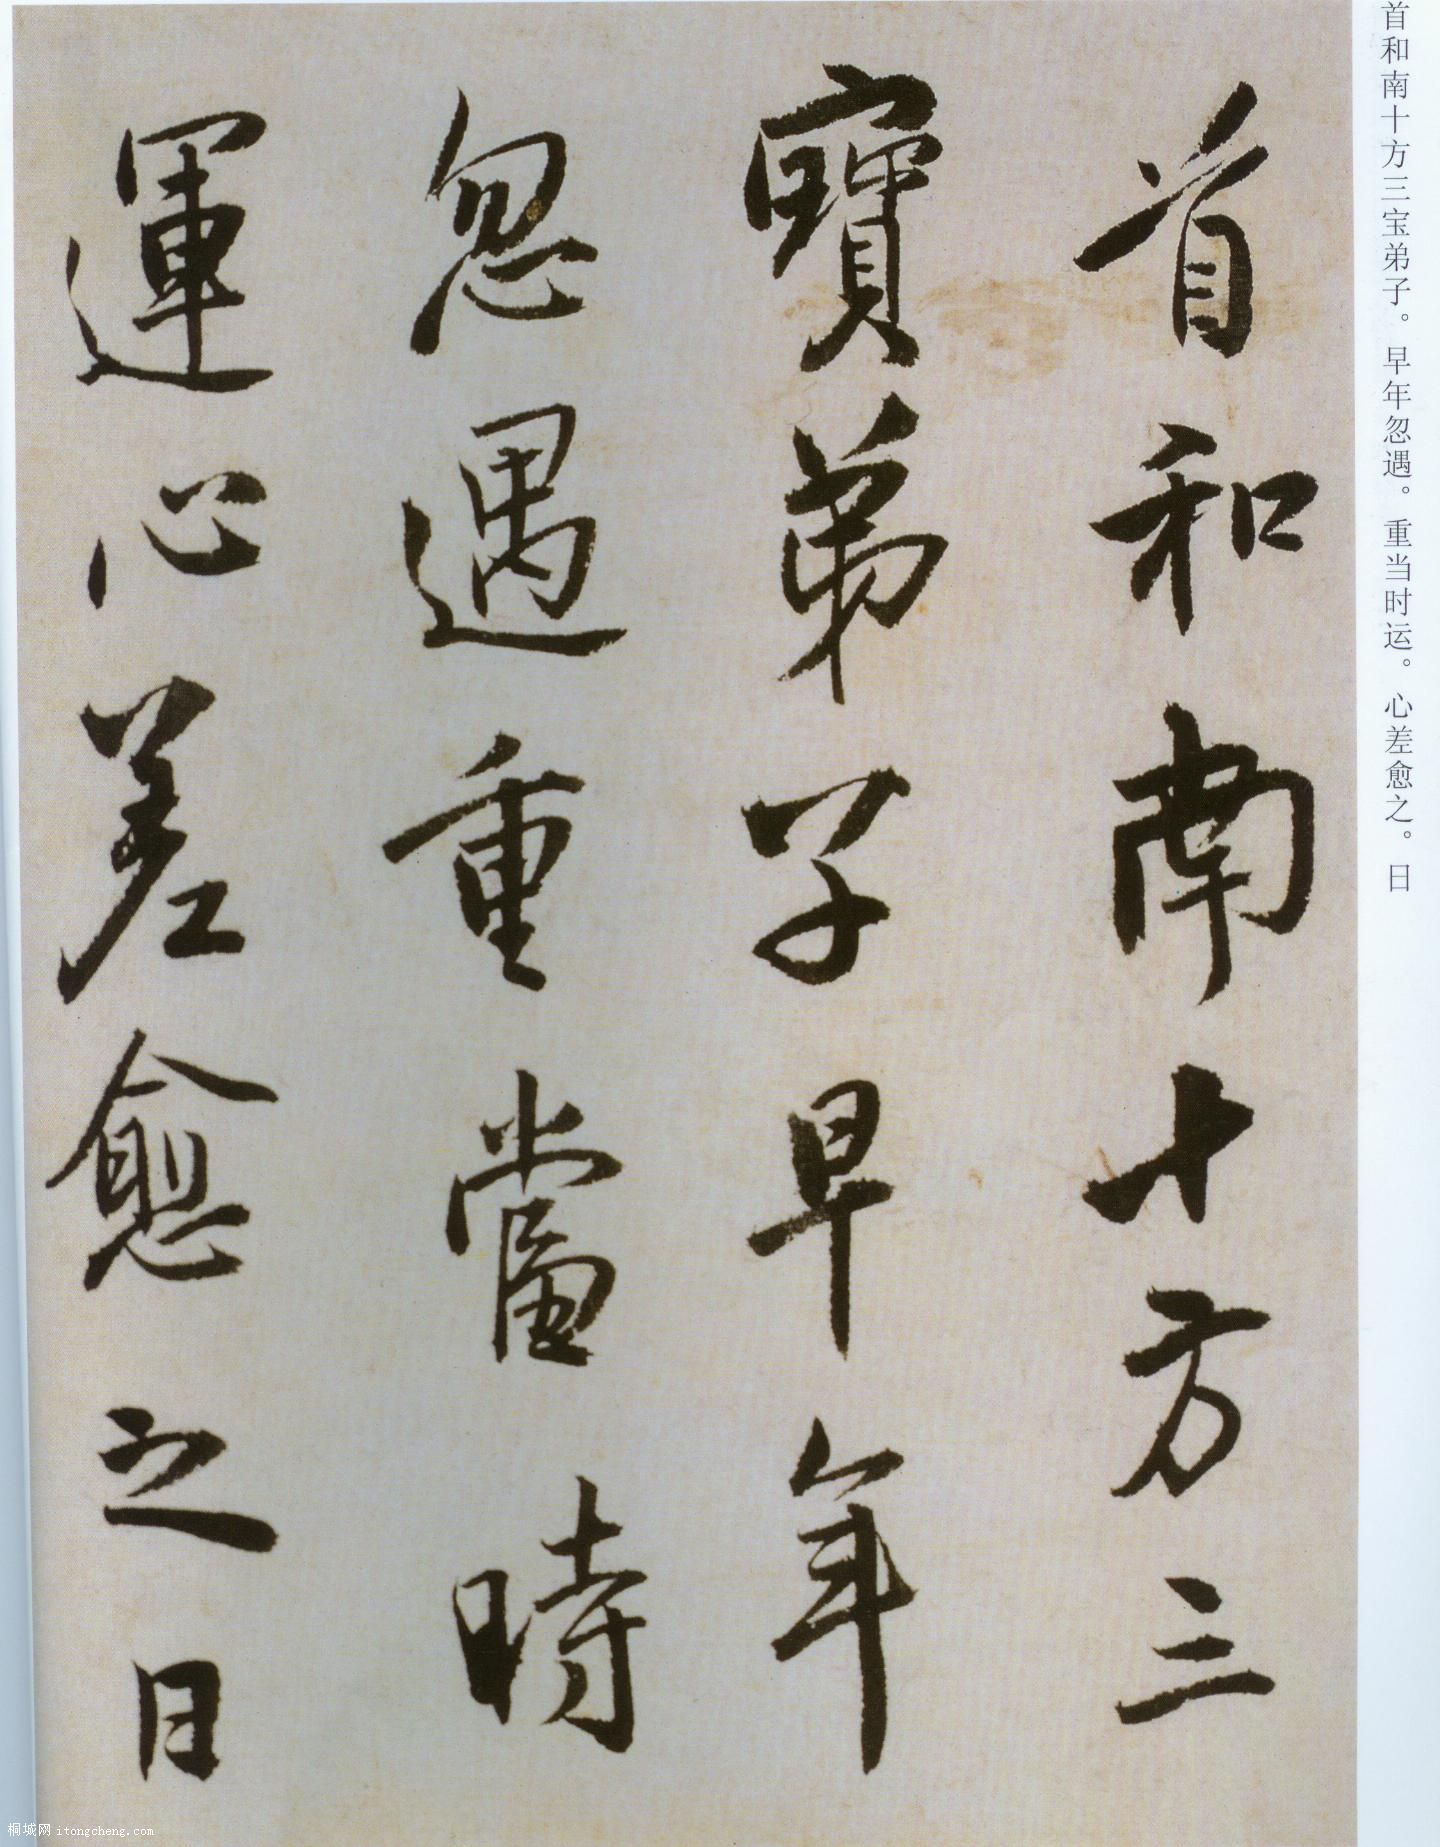 首和南十方三宝弟子。早年忽遇。重当时运。心差愈之。日
首和南十方三
寶弟子早年
忽遇重當時
運心差愈之日
桐城网 itongcheng.com